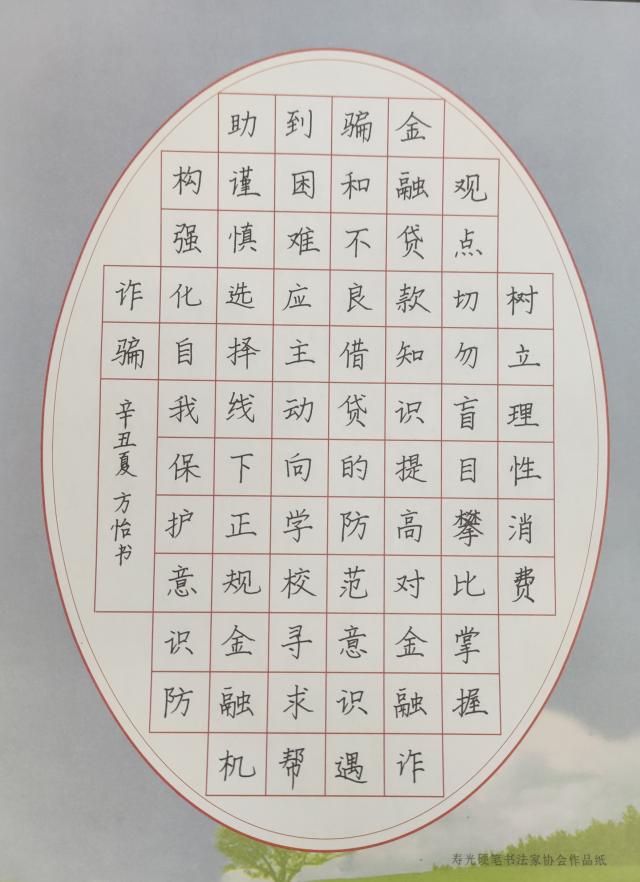 树立理性消费
观点切勿盲目攀比掌握
金融贷款知识提高对金融诈
骗和不良借贷的防范意识遇
到困难应主动向学校寻求帮
助谨慎选择线下正规金融机
构强化自我保护意识防
诈骗
辛丑夏 方怡书
寿光硬笔书法家协会作品纸